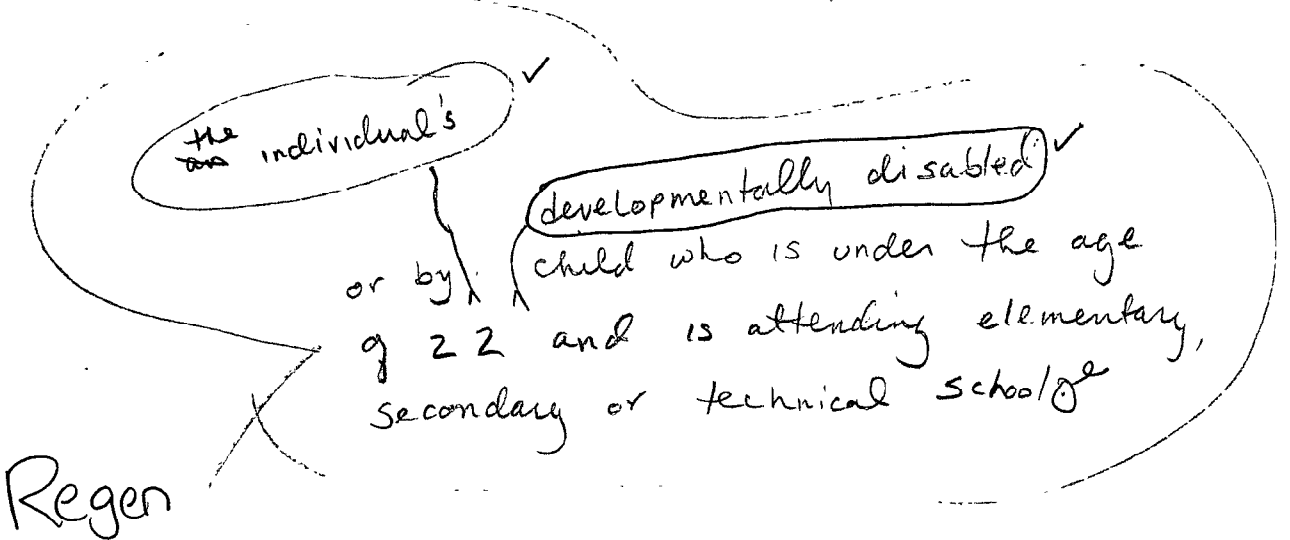 the individual's
developmentally disabled
or by child who is under the age
of 22 and is attending elementary,
secondary or technical school
Regen